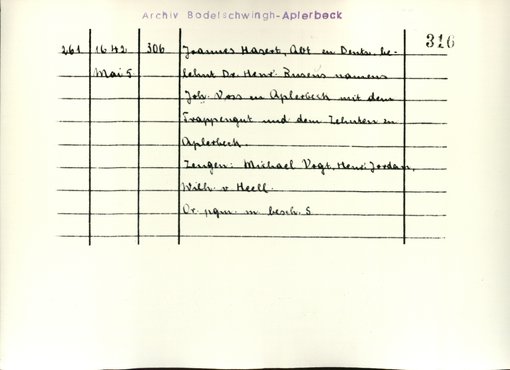 Archiv Bodelschwingh-Aplerbeck
316
261 1642 306 Joannes Hasert, Abt zu Deutz, be-
Mai 5 lehnt Dr. Henr. Rusens namens
Joh. Voss zu Aplerbeck mit dem
Trappengut und dem Zehnten zu
Aplerbeck.
Zeugen: Michael Vogt, Henr. Jordan,
Wilh. v. Heell.
Or. pgm. m. besch. S